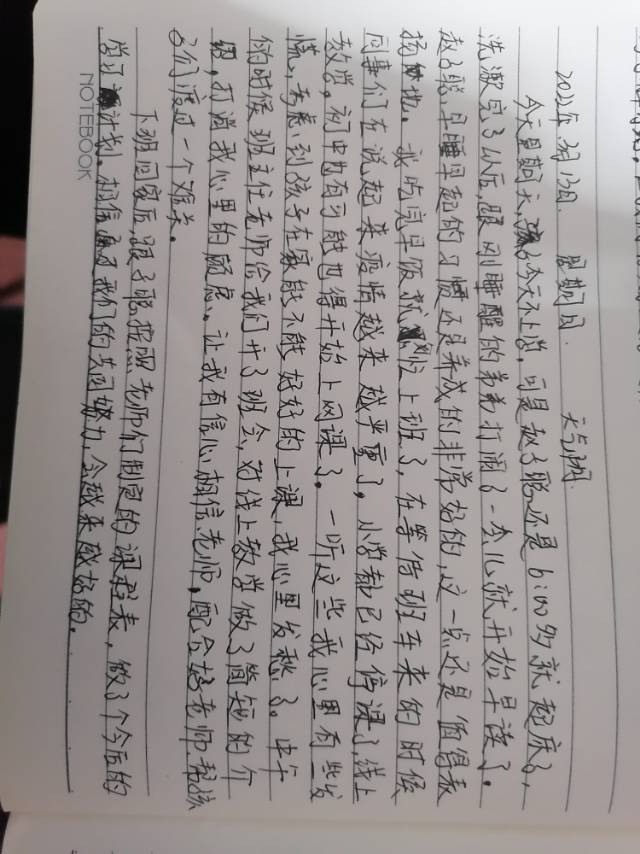 2022年3月13日. 星期日. 天气晴.
今天星期天,虽然今天不上学,可是赵子聪还是6:00多就起床了,
洗漱完了以后,跟刚睡醒的弟弟打闹了一会儿就开始早读了.
赵子聪早睡早起的习惯还是养成的非常好的,这一点还是值得表
扬他地。我吃完早饭就赶上班了,在等待班车来的时候
同事们在说起来疫情越来越严重了。小学都已经停课了,线上
教学,初中也有可能也得开始上网课了。一听这些我心里有些发
慌,考虑到孩子在家能不能好好的上课,我心里发愁了。中午
的时候班主任老师给我们开了班会,对线上教学做了简短的介
绍,打消我心里的顾虑。让我有信心相信老师,配合好老师帮孩
子们渡过一个难关。
下班回家后,跟子聪按照老师们制定的课程表,做了个今后的
学习计划。相信我们的共同努力,会越来越好的.
NOTEBOOK